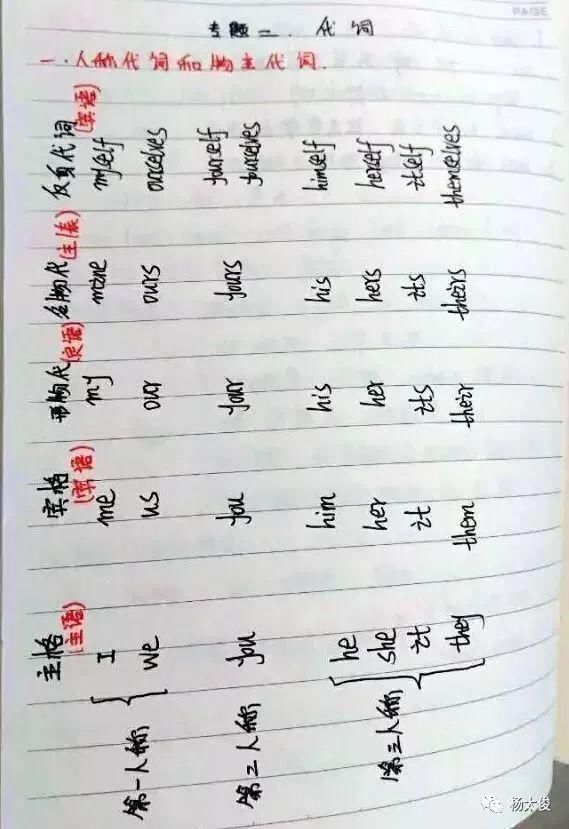 PAGE
专题二. 代词
一.人称代词和物主代词.
主格 宾格 形物代 名物代 反身代词
(主语) (宾语) (定语) (宾语)
第一人称 I me my mine myself
we us our ours ourselves
第二人称 you you your yours yourself
yourselves
第三人称 he him his his himself
she her her hers herself
it it its its itself
they them their theirs themselves
杨太俊